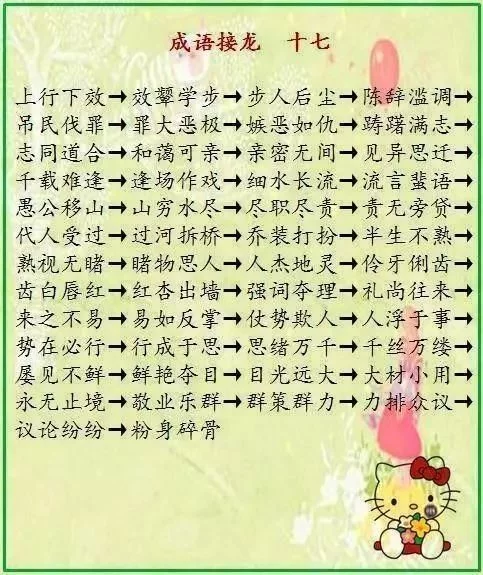 成语接龙 十七
上行下效→效颦学步→步人后尘→陈辞滥调→
吊民伐罪→罪大恶极→嫉恶如仇→踌躇满志→
志同道合→和蔼可亲→亲密无间→见异思迁→
千载难逢→逢场作戏→细水长流→流言蜚语→
愚公移山→山穷水尽→尽职尽责→责无旁贷→
代人受过→过河拆桥→乔装打扮→半生不熟→
熟视无睹→睹物思人→人杰地灵→伶牙俐齿→
齿白唇红→红杏出墙→强词夺理→礼尚往来→
来之不易→易如反掌→仗势欺人→人浮于事→
势在必行→行成于思→思绪万千→千丝万缕→
屡见不鲜→鲜艳夺目→目光远大→大材小用→
永无止境→敬业乐群→群策群力→力排众议→
议论纷纷→粉身碎骨